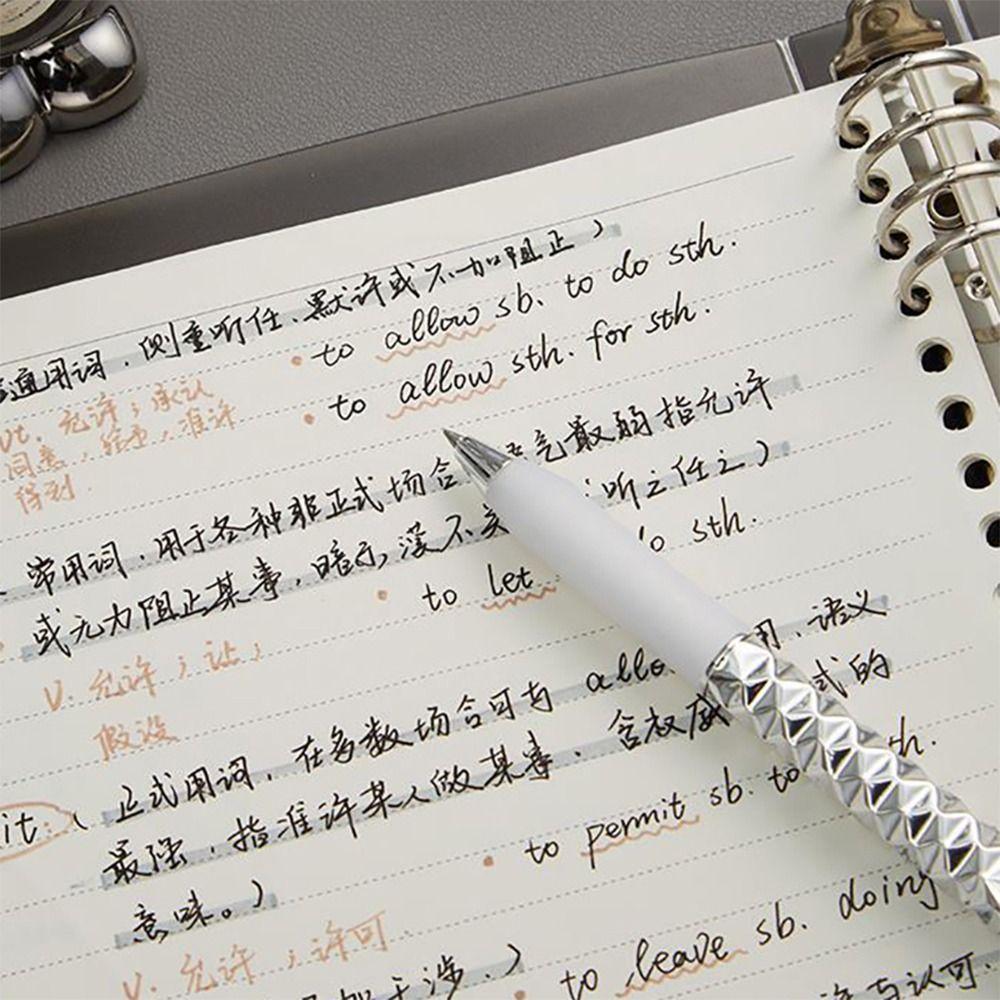 通用词．侧重听任、默许或不加阻止）
• to allow sb. to do sth.
vt. 允许；承认
• to allow sth. for sth.
同意，给予，准许
得到
常用词．用于各种非正式场合 语气最弱指允许
或无力阻止某事，暗示没不关 听之任之）
• to let do sth.
v. 允许；让；
假设
it：（正式用词．在多数场合可与 allo 用．语义
最强，指准许某人做某事．含权威 式的
意味。）
• to permit sb. to th.
v. 允许；许可
• to leave sb. doing
干涉．）
与认可．